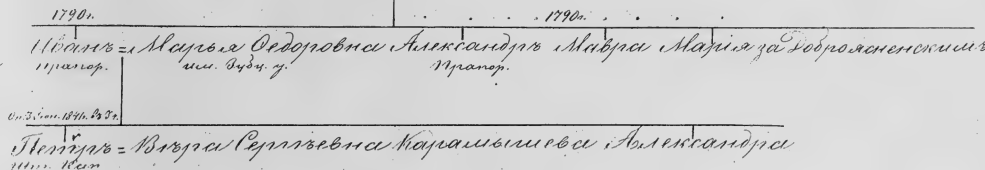 1790г. 1790г.
Иванъ = Марья Ѳедоровна Александръ Мавра Марія за Доброжоненскимъ
прапор. им. Зубц. у. Прапор.
Петръ = Вѣра Сергѣевна Карамышева Александра
Шт. Кап